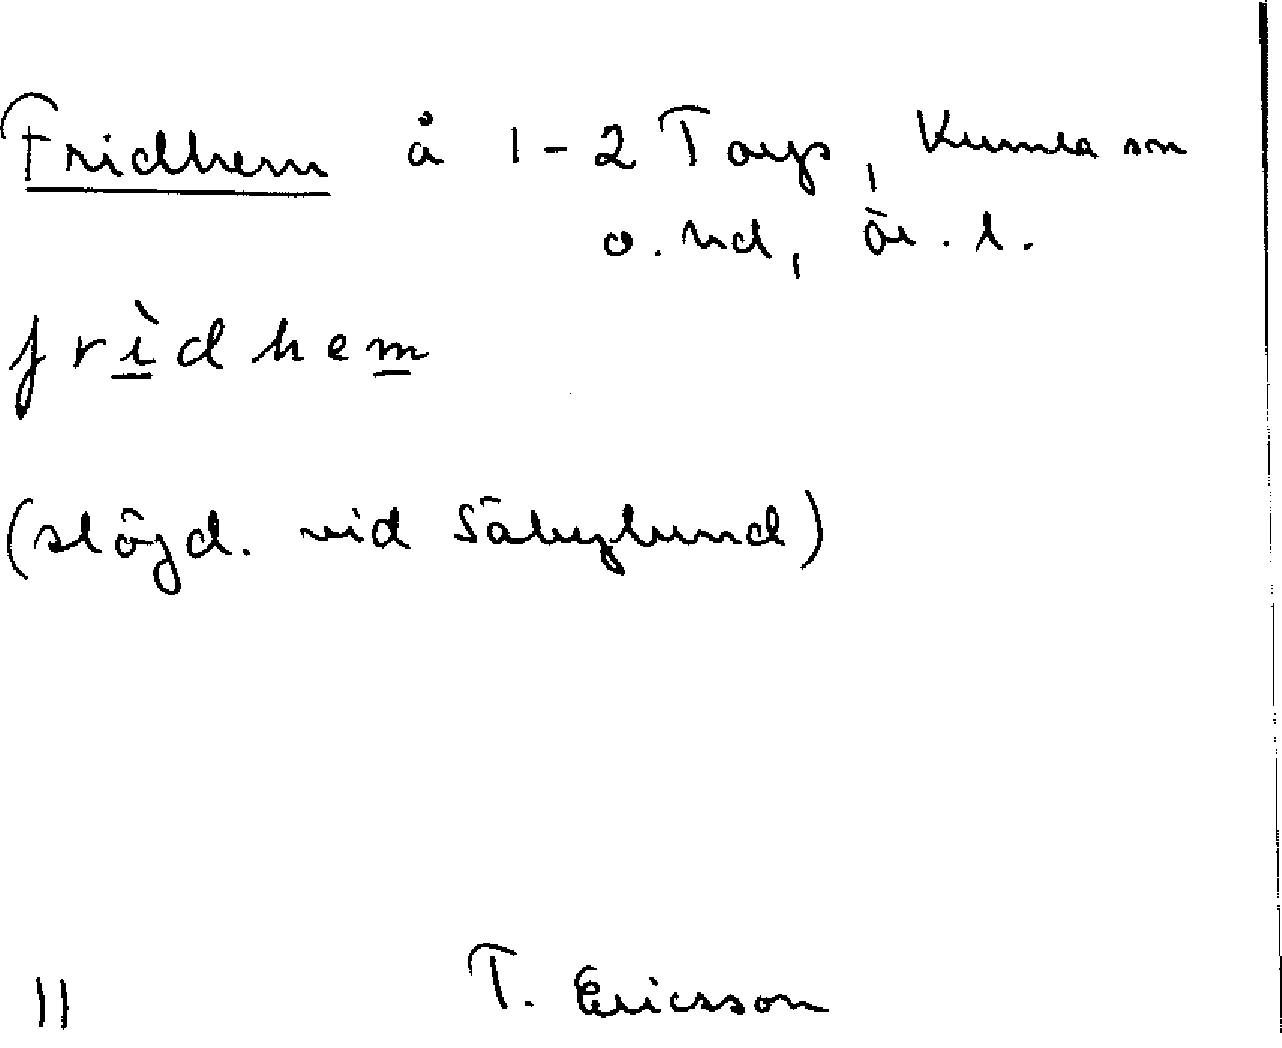 Fridhem å 1-2 Torp, Kumla sn
o. hd, Ör. l.
frìdhem
(slöjd. vid Säbylund)
11 T. Ericsson